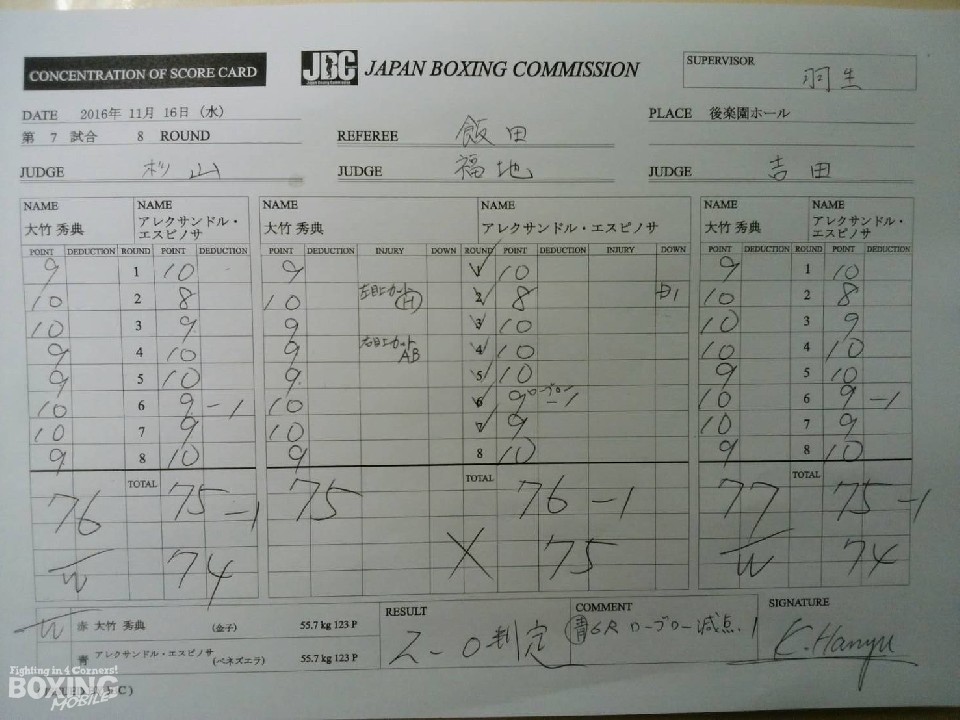 CONCENTRATION OF SCORE CARD
JBC JAPAN BOXING COMMISSION
SUPERVISOR 羽生
DATE 2016年 11月 16日 (水)
PLACE 後楽園ホール
第 7 試合 8 ROUND
REFEREE 飯田
JUDGE 杉山 JUDGE 福地 JUDGE 吉田
NAME NAME NAME NAME NAME NAME
大竹 秀典 アレクサンドル・エスピノサ 大竹 秀典 アレクサンドル・エスピノサ 大竹 秀典 アレクサンドル・エスピノサ
POINT DEDUCTION ROUND POINT DEDUCTION POINT DEDUCTION INJURY DOWN ROUND POINT DEDUCTION INJURY DOWN POINT DEDUCTION ROUND POINT DEDUCTION
9 1 10 9 1 10 9 1 10
10 2 8 10 左目上カット (H) 2 8 1 10 2 8
10 3 9 9 3 10 10 3 9
9 4 10 9 右目上カット AB 4 10 10 4 10
9 5 10 9 5 10 9 5 10
10 6 9 -1 10 6 9 ローブロー -1 10 6 9 -1
10 7 9 10 7 9 10 7 9
9 8 10 9 8 10 9 8 10
76 TOTAL 75 -1 75 TOTAL 76 -1 77 TOTAL 75 -1
W 74 X 75 W 74
W 赤 大竹 秀典 (金子) 55.7 kg 123 P
青 アレクサンドル・エスピノサ (ベネズエラ) 55.7 kg 123 P
RESULT 2-0判定
COMMENT 青 6R ローブロー減点 1
SIGNATURE K.Hanyu
Fighting in 4 Corners!
BOXING
MOBILE